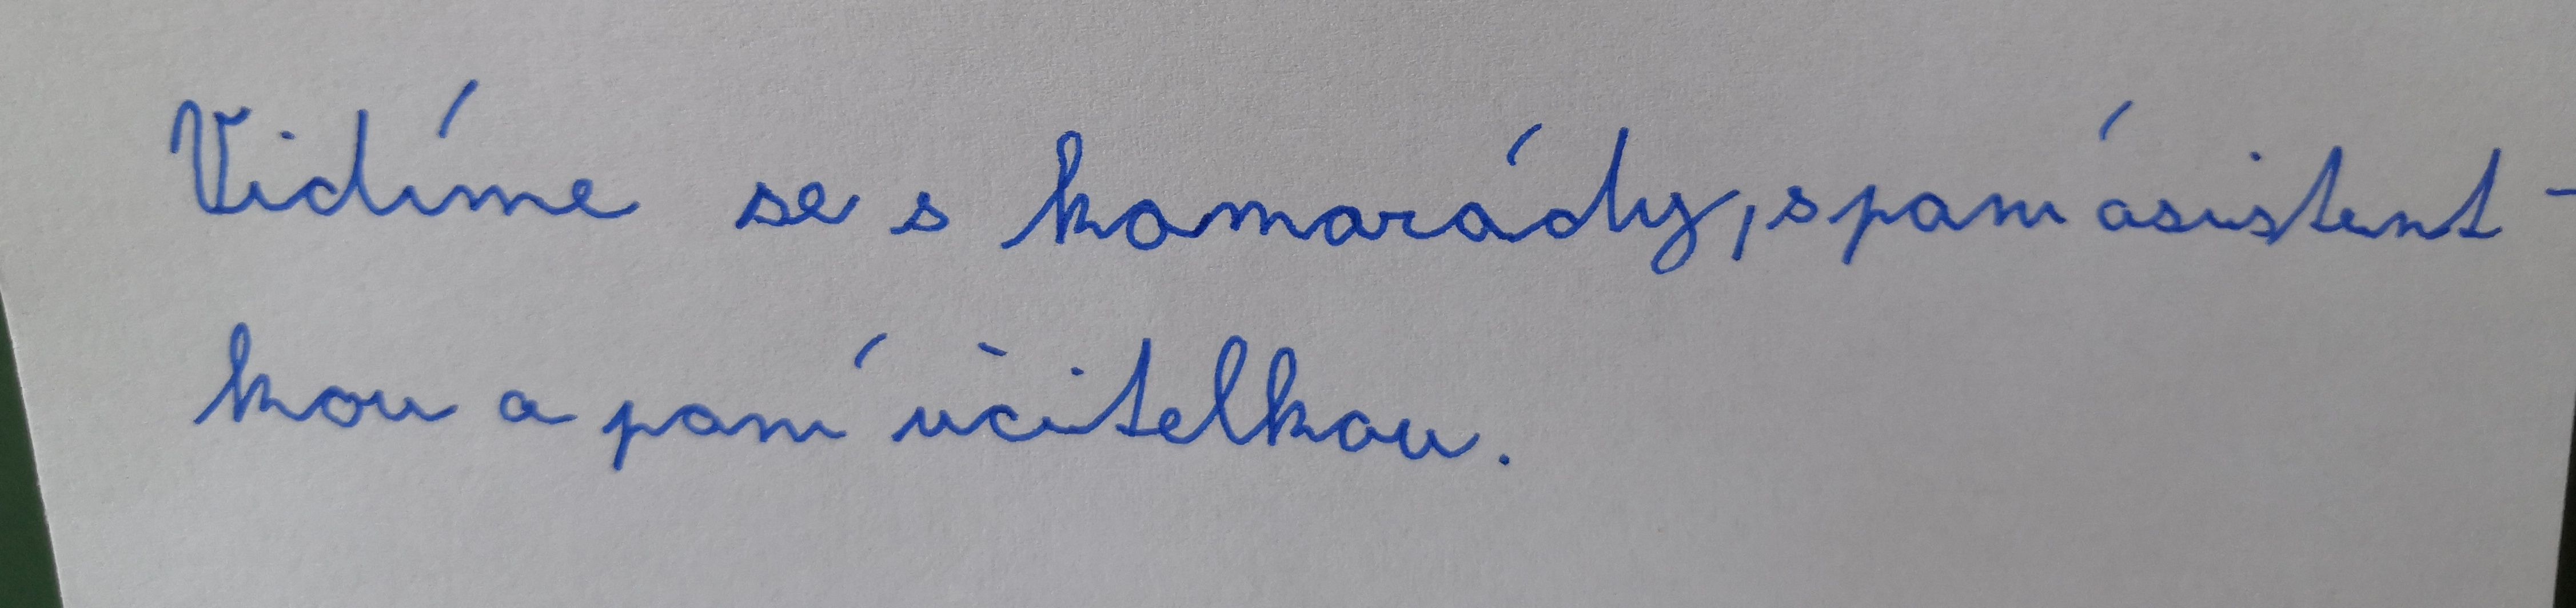 Vidíme se s kamarády, s paní asistent-
kou a paní učitelkou.